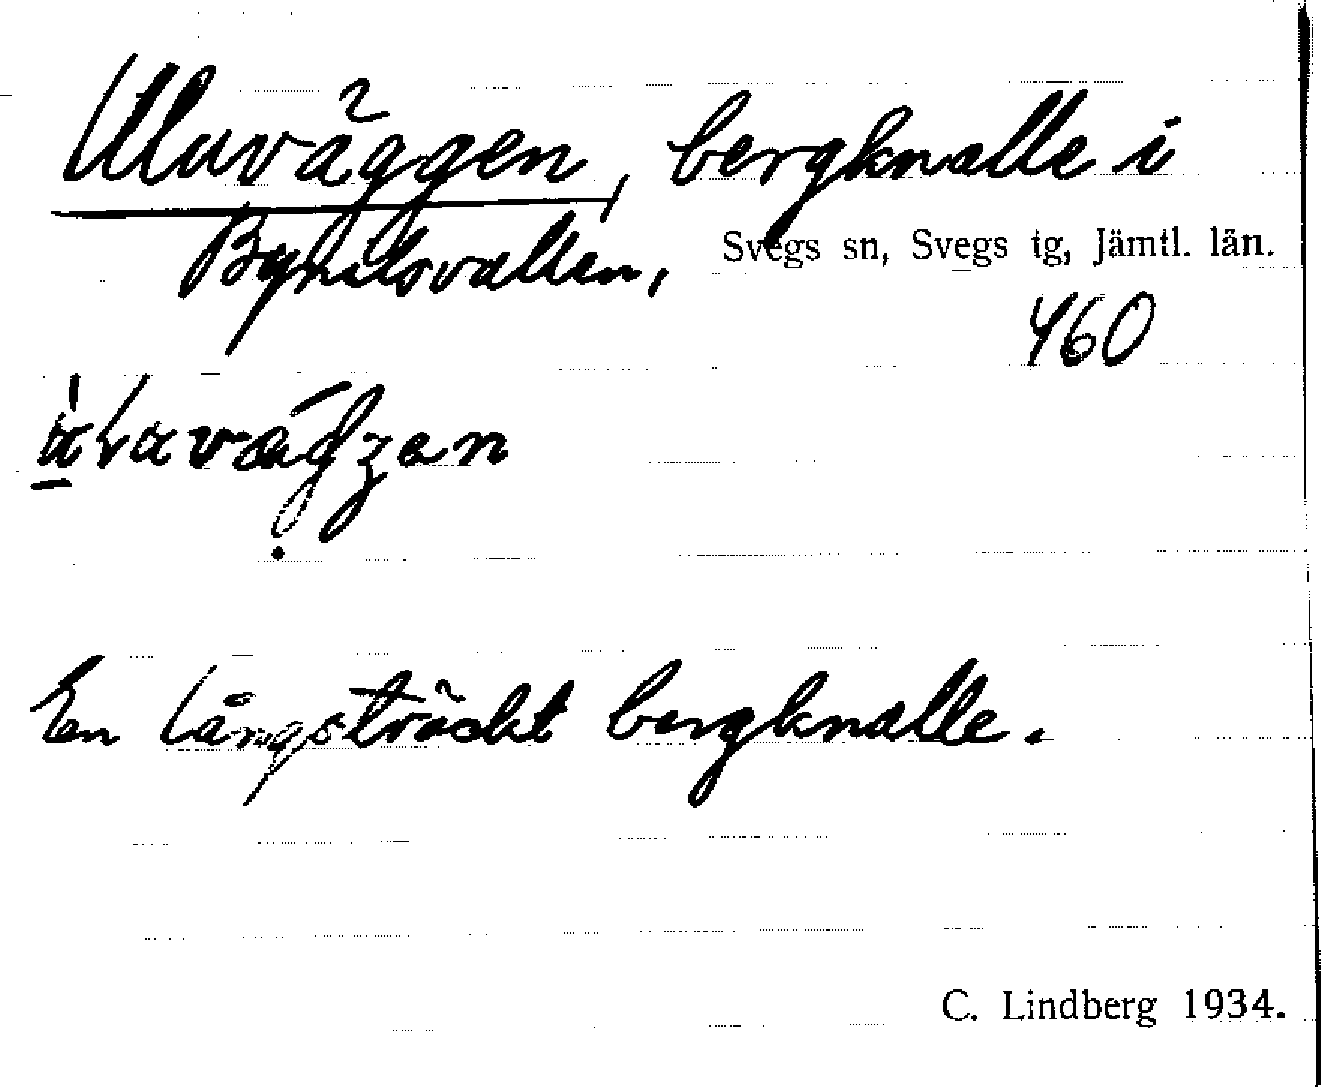 Uluväggen, bergknalle i
Bynilsvallen, Svegs sn, Svegs tg, Jämtl. län.
460
En långsträckt bergknalle.
C. Lindberg 1934.